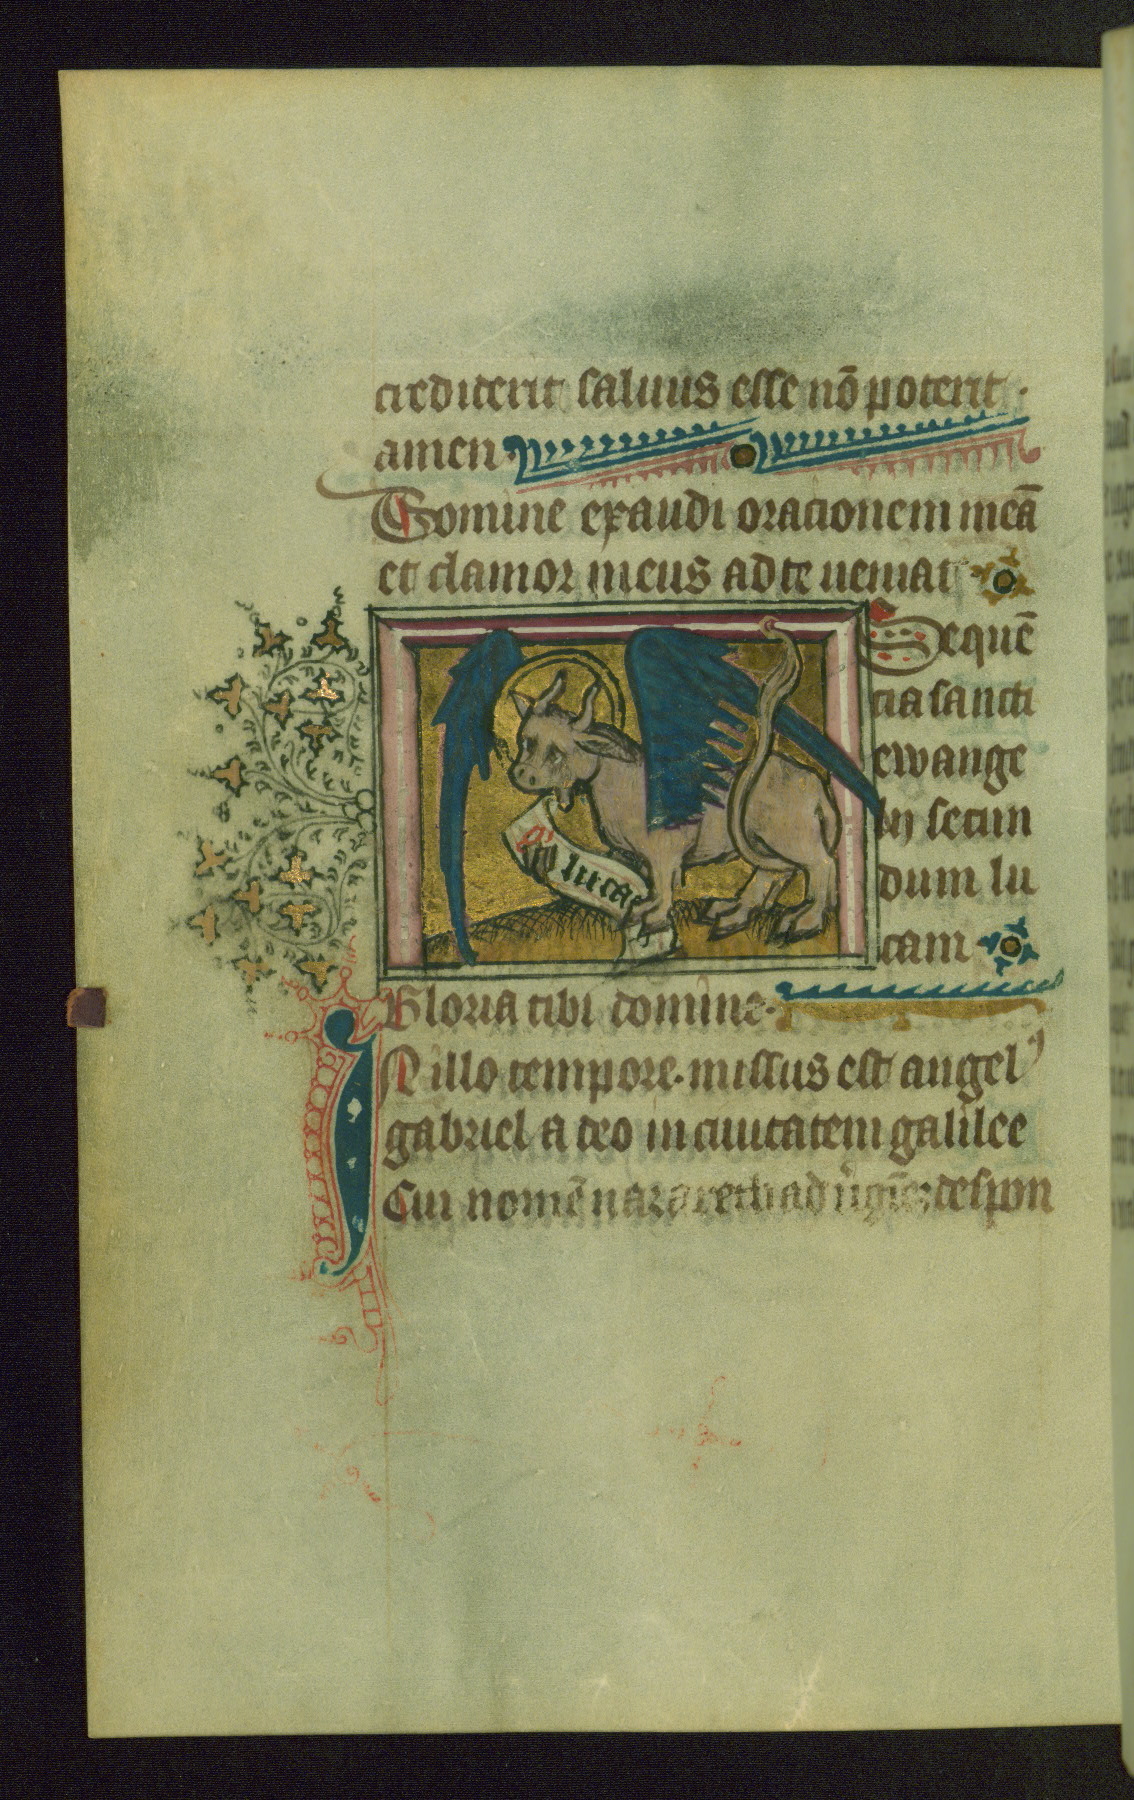 crediderit saluus esse nō poterit.
amen
Domine exaudi orationem meā
et clamor meus ad te ueniat
Sequē
tia sancti
ewange
lij secun
dum lu
cam
lucas
Gloria tibi domine.
IN illo tempore. missus est angel⁹
gabriel a deo in ciuitatem galilee
Cui nomē nazareth ad despon